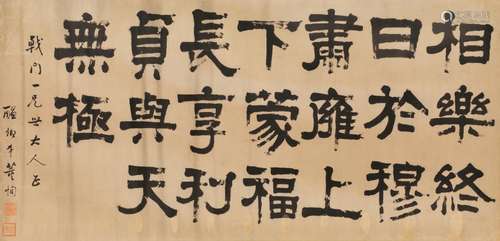 相樂終
日於穆
肅雍上
下蒙福
長享利
貞與天
無極
戟門一兄世大人正
醖卿弟董恂